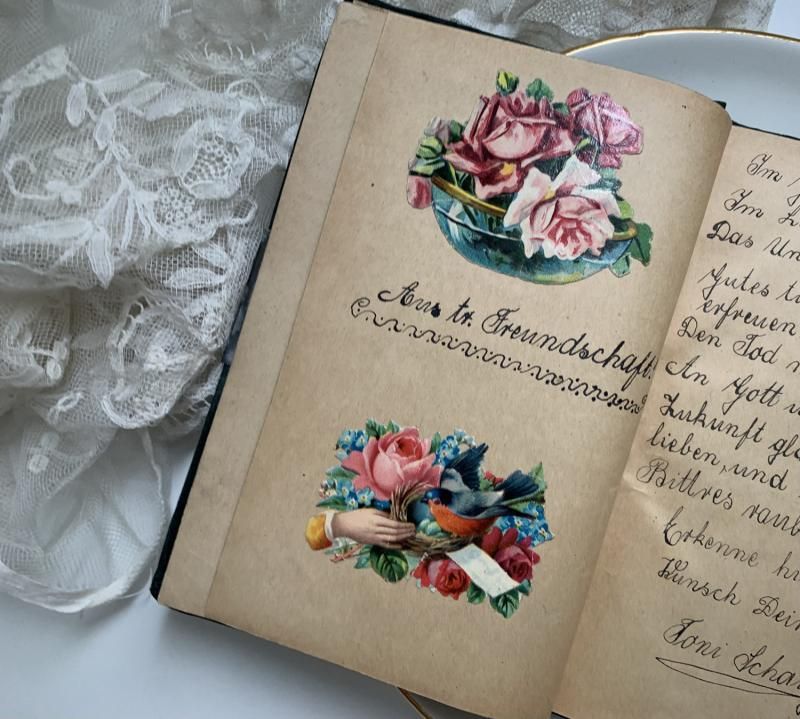 Aus tr. Freundschaft!
Im
Im
Das Un
Gutes
erfreuen
Den Tod
An Gott
Zukunft
lieben, und
Bittres raub
Erkenne
Wunsch Dein
Toni Scha